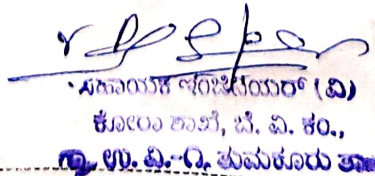 ಸಹಾಯಕ ಇಂಜಿನಿಯರ್ (ವಿ)
ಕೋರಾ ಶಾಖೆ, ಬೆ. ವಿ. ಕಂ.,
ಗ್ರಾ. ಉ. ವಿ.-೧. ತುಮಕೂರು ತಾ